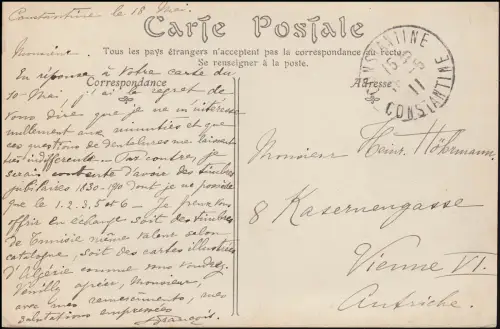 Constantine le 18 Mai.
Carte Postale
Tous les pays étrangers n'acceptent pas la correspondance au recto.
Se renseigner à la poste.
Correspondance
Adresse
CONSTANTINE
CONSTANTINE
11
Monsieur.
En réponse à votre carte du
10 Mai j'ai le regret de
vous dire que je ne m'intéresse
nullement aux minuties et que
ces questions de dentelures me laissent
indifférente. Par contre, je
serais contente d'avoir des timbres
jubilaires 1830-1910 dont je ne possède
que le 1. 2. 3. 5 et 6 — Je peux vous
offrir en échange soit des timbres
de Tunisie même valeur selon
catalogue, soit des cartes illustrées
d'Algérie comme vous voudrez.
Veuillez agréer, Monsieur,
avec mes remerciements, mes
salutations empressées
Monsieur Heinr.
8 Kasernengasse
Vienne VI.
Autriche.